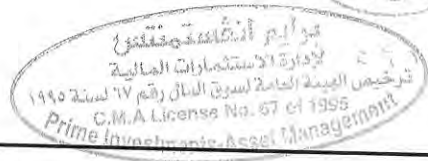 برايم انفستمنتس
لإدارة الاستثمارات المالية
ترخيص الهيئة العامة لسوق المال رقم ٦٧ لسنة ١٩٩٥
C.M.A License No. 67 of 1995
Prime Investments Asset Management